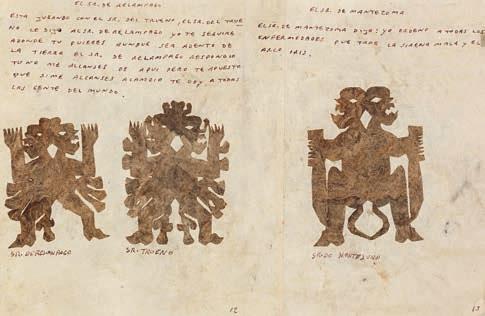 EL SR. DE RELAMPAGO
ESTA JURANDO CON EL SR. DEL TRUENO, EL SR. DEL TRUE
NO LE DIJO AL SR. DE RELAMPAGO YO TE SEGUIRE
ADONDE TU QUIERES AUNQUE SEA ADENTO DE
LA TIERRA EL SR. DE RELAMPAGO RESPONDIO
TU NO ME ALCANSES DE AQUI PERO TE APUESTA
QUE SI ME ALCANSES A CAMBIO TE DOY A TODAS
LAS GENTE DEL MUNDO.
SR. DE RELAMPAGO
SR. TRUENO
12
EL SR. DE MANTEZOMA
EL SR. DE MANTEZOMA DIJO: YO ORDENO A TODAS LOS
ENFERMEDADES QUE TRAE LA SIRENA MALA Y EL
ARCO IRIS.
SR. DO MONTEZUMA
13